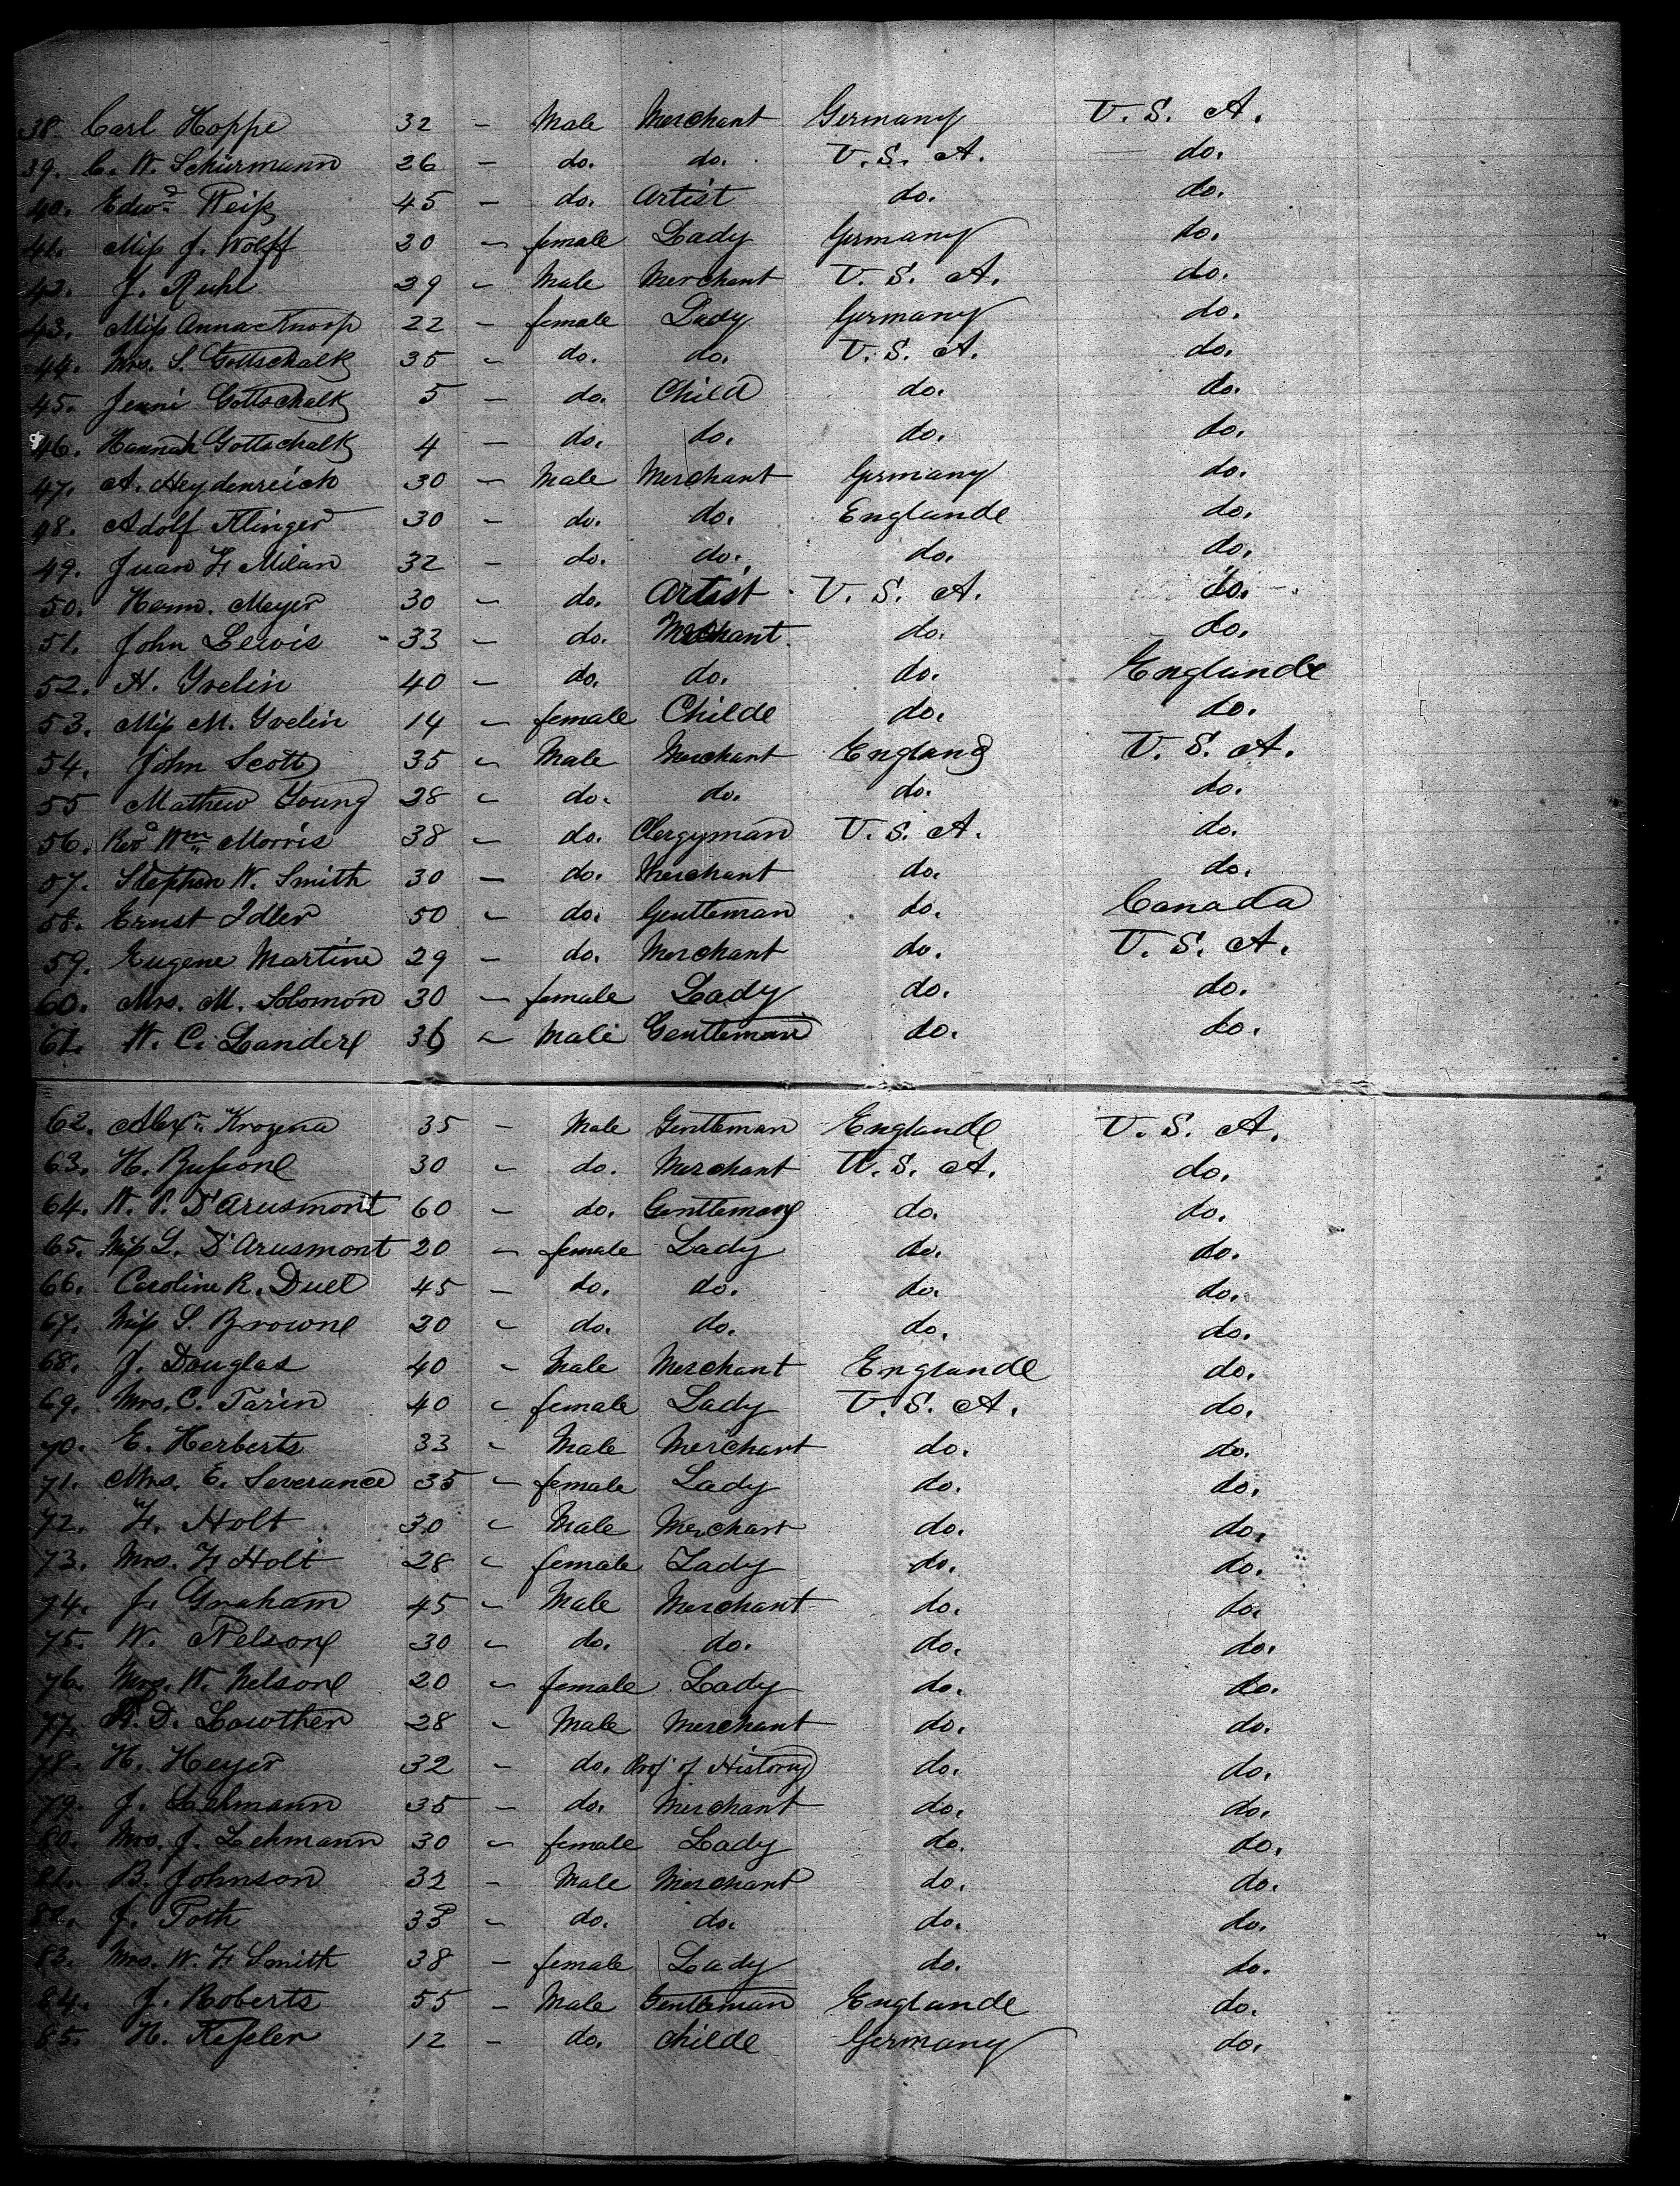 38. Carl Hoppe 32 - Male Merchant Germany U. S. A.
39. C. W. Schürmann 26 - do. do. U. S. A. do.
40. Edwd Weiss 45 - do. Artist do. do.
41. Miss J. Wolff 20 - female Lady Germany do.
42. J. Ruhl 29 - Male Merchant U. S. A. do.
43. Miss Anna Knorp 22 - female Lady Germany do.
44. Mrs. S. Gottschalk 35 - do. do. U. S. A. do.
45. Jenni Gottschalk 5 - do. Child do. do.
46. Hannah Gottschalk 4 - do. do. do. do.
47. A. Heydenreich 30 - Male Merchant Germany do.
48. Adolf Klinger 30 - do. do. Englande do.
49. Juan F. Milan 32 - do. do. do. do.
50. Herm. Meyer 30 - do. Artist U. S. A. do.
51. John Lewis 33 - do. Merchant do. do.
52. H. Ivelin 40 - do. do. do. Englande
53. Miss M. Ivelin 14 - female Childe do. do.
54. John Scott 35 - Male Merchant England U. S. A.
55 Mathew Young 28 - do. do. do. do.
56. Revd Wm Morris 38 - do. Clergyman U. S. A. do.
57. Stephen W. Smith 30 - do. Merchant do. do.
58. Ernst Idler 50 - do. Gentleman do. Canada
59. Eugene Martine 29 - do. Merchant do. U. S. A.
60. Mrs. M. Solomon 30 - female Lady do. do.
61. W. C. Landere 36 - Male Gentleman do. do.
62. Alexr 35 - Male Gentleman Englande U. S. A.
63. H. 30 - do. Merchant U. S. A. do.
64. W. P. D'Arusmont 60 - do. Gentleman do. do.
65. Miss L. D'Arusmont 20 - female Lady do. do.
66. Caroline R. Duel 45 - do. do. do. do.
67. Miss S. Browne 20 - do. do. do. do.
68. J. Douglas 40 - Male Merchant Englande do.
69. Mrs. C. Tarin 40 - female Lady U. S. A. do.
70. E. Herberts 33 - Male Merchant do. do.
71. Mrs. E. Severance 35 - female Lady do. do.
72. F. Holt 30 - Male Merchant do. do.
73. Mrs. F. Holt 28 - female Lady do. do.
74. J. Graham 45 - Male Merchant do. do.
75. W. Nelsone 30 - do. do. do. do.
76. Mrs. W. Nelsone 20 - female Lady do. do.
77. D. Lowther 28 - Male Merchant do. do.
78. H. Heyer 32 - do. Prof of History do. do.
79. J. Lehmann 35 - do. Merchant do. do.
80. Mrs. J. Lehmann 30 - female Lady do. do.
81. B. Johnson 32 - Male Merchant do. do.
82. J. Toth 33 - do. do. do. do.
83. Mrs. W. F. Smith 38 - female Lady do. do.
84. J. Roberts 55 - Male Gentleman Englande do.
85. H. Kessler 12 - do. childe Germany do.